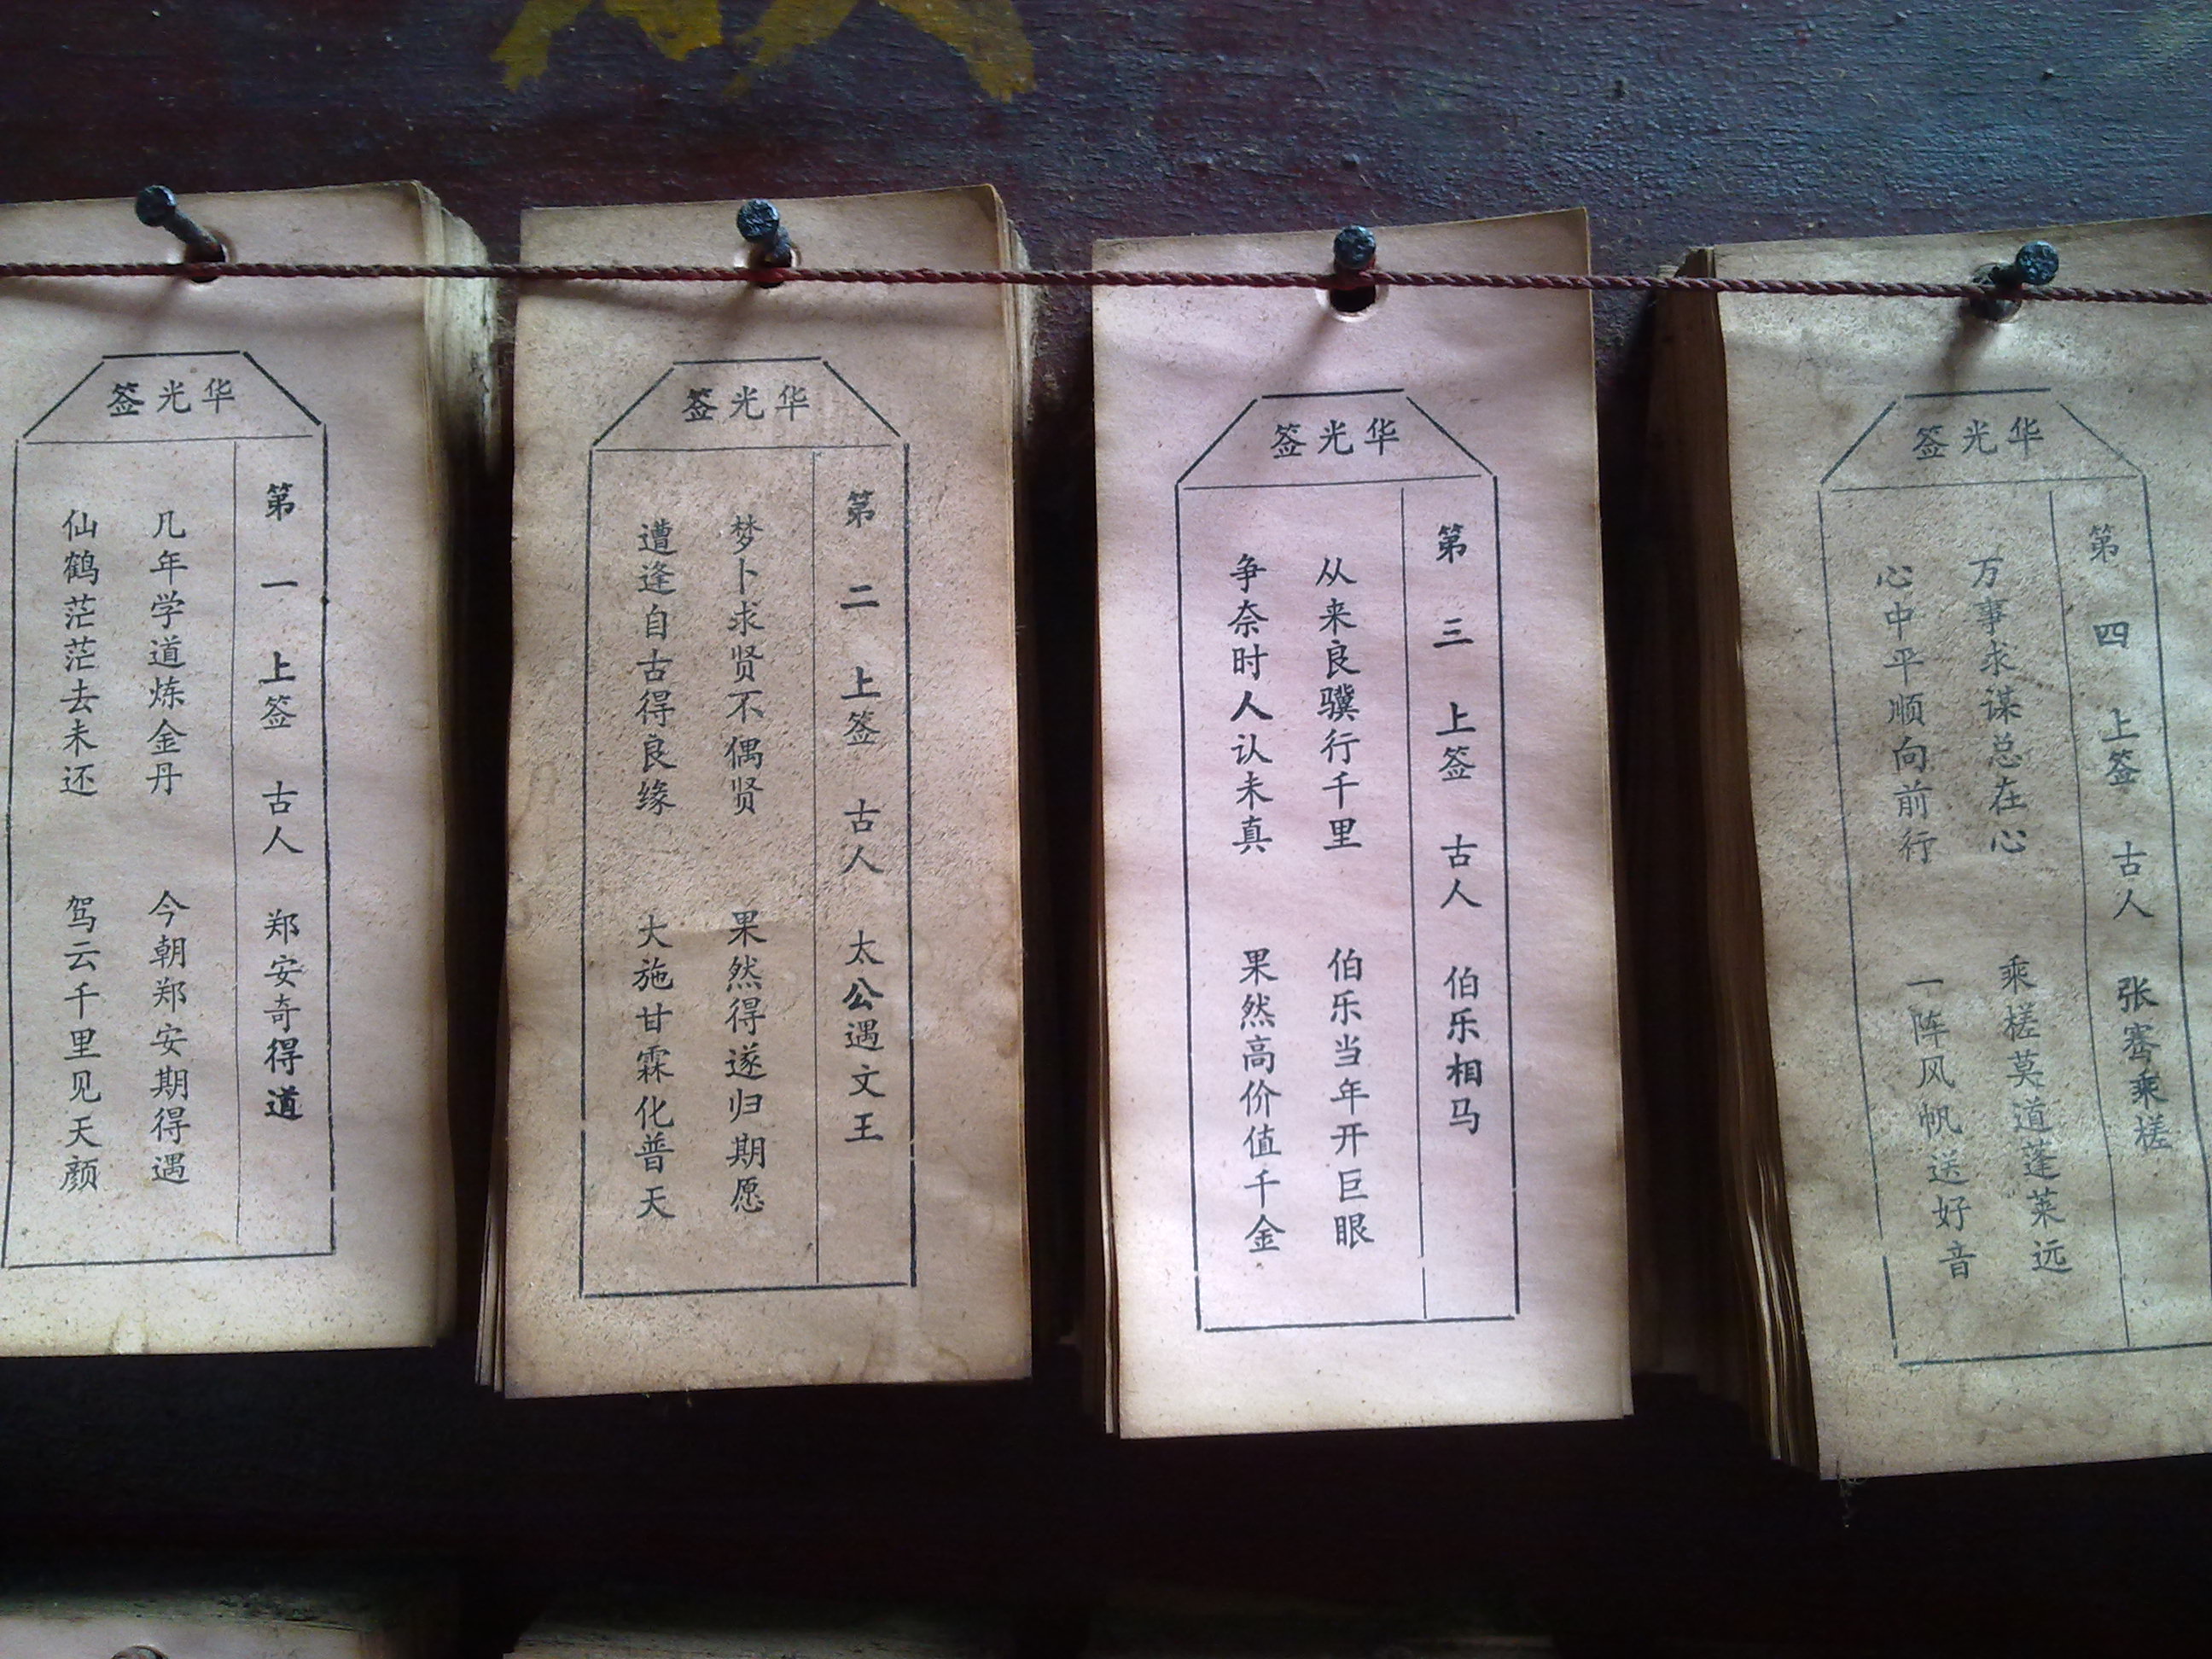 华光签
第一 上签 古人 郑安奇得道
几年学道炼金丹 今朝郑安期得遇
仙鹤茫茫去未还 驾云千里见天颜
华光签
第二 上签 古人 太公遇文王
梦卜求贤不偶贤 果然得遂归期愿
遭逢自古得良缘 大施甘霖化普天
华光签
第三 上签 古人 伯乐相马
从来良骥行千里 伯乐当年开巨眼
争奈时人认未真 果然高价值千金
华光签
第四 上签 古人 张骞乘槎
万事求谋总在心 乘槎莫道蓬莱远
心中平顺向前行 一阵风帆送好音